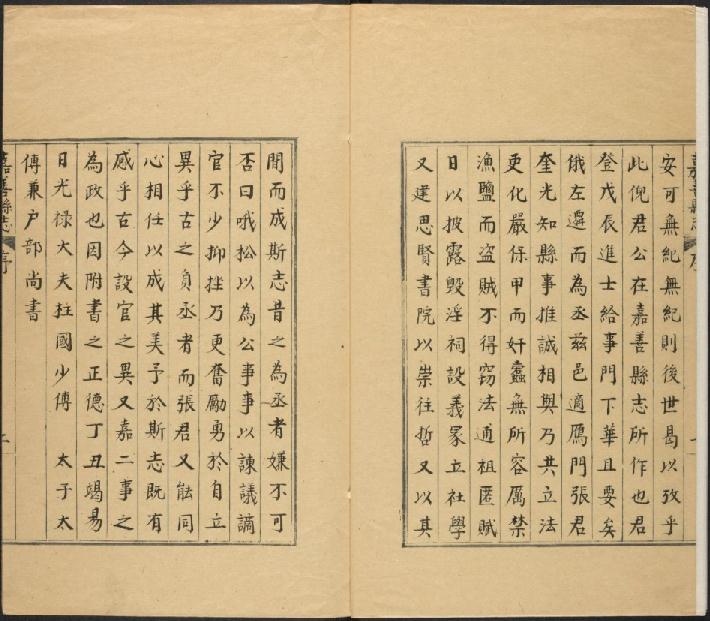 嘉善縣志 序
安可無紀無紀則後世曷以攷乎
此倪君公在嘉善縣志所作也君
登戊辰進士給事門下華且要矣
俄左遷而為丞兹邑適鴈門張君
奎光知縣事推誠相與乃共立法
更化嚴保甲而奸蠹無所容厲禁
漁鹽而盗賊不得竊法逋租匿賦
日以披露毁淫祠設義冢立社學
又建思賢書院以崇往哲又以其
間而成斯志昔之為丞者嫌不可
否曰哦松以為公事事以諫議謫
官不少抑挫乃更奮勵勇於自立
異乎古之負丞者而張君又能同
心相任以成其美予於斯志既有
感乎古今設官之異又嘉二事之
為政也因附書之正德丁丑竭易
日光禄大夫柱國少傅 太子太
傅兼戶部尚書
嘉善縣志 序